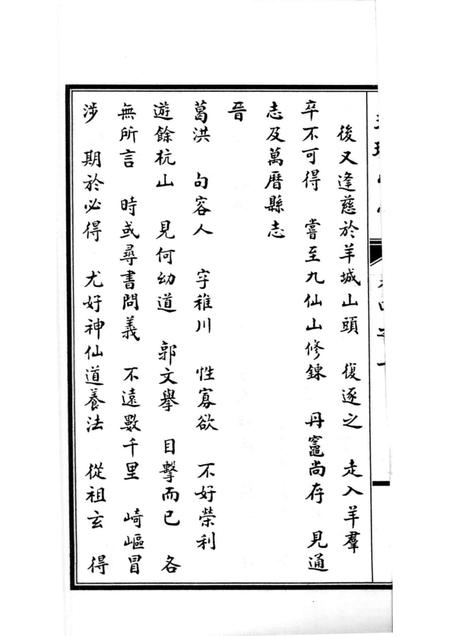 後又逢慈於羊城山頭 復逐之 走入羊羣
卒不可得 嘗至九仙山修鍊 丹竈尚存 見通
志及萬曆縣志
晉
葛洪 句容人 字稚川 性寡欲 不好榮利
遊餘杭山 見何幼道 郭文舉 目擊而已 各
無所言 時或尋書問義 不遠數千里 崎嶇冒
涉 期於必得 尤好神仙道養法 從祖玄 得